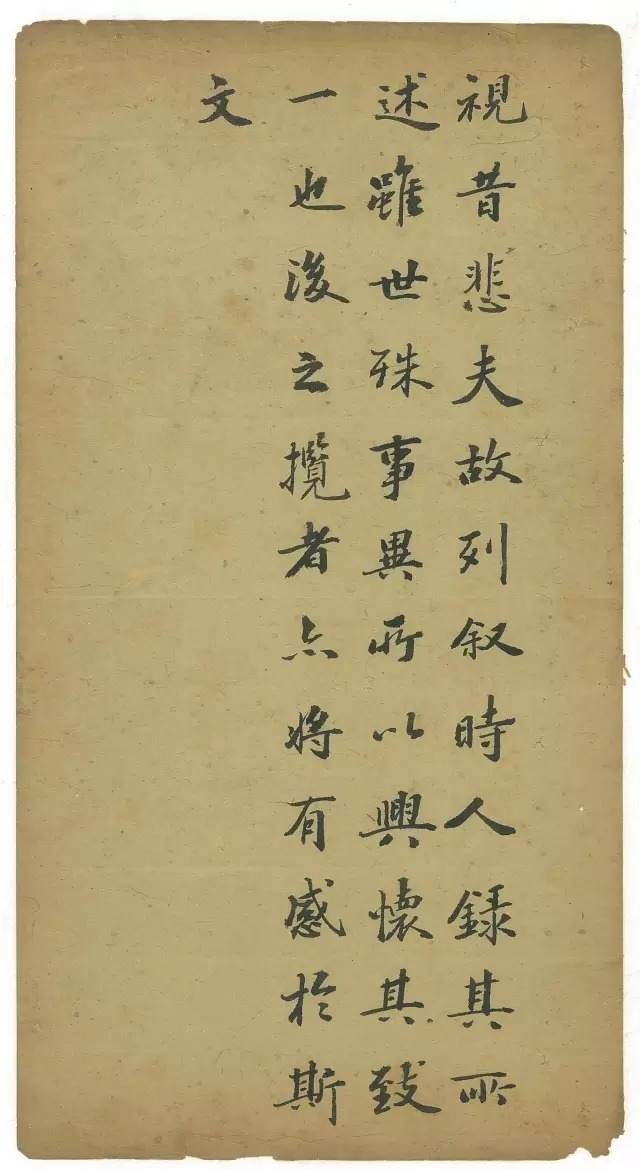 視昔悲夫故列叙時人録其所
述雖世殊事異所以興懷其致
一也後之攬者亦將有感於斯
文